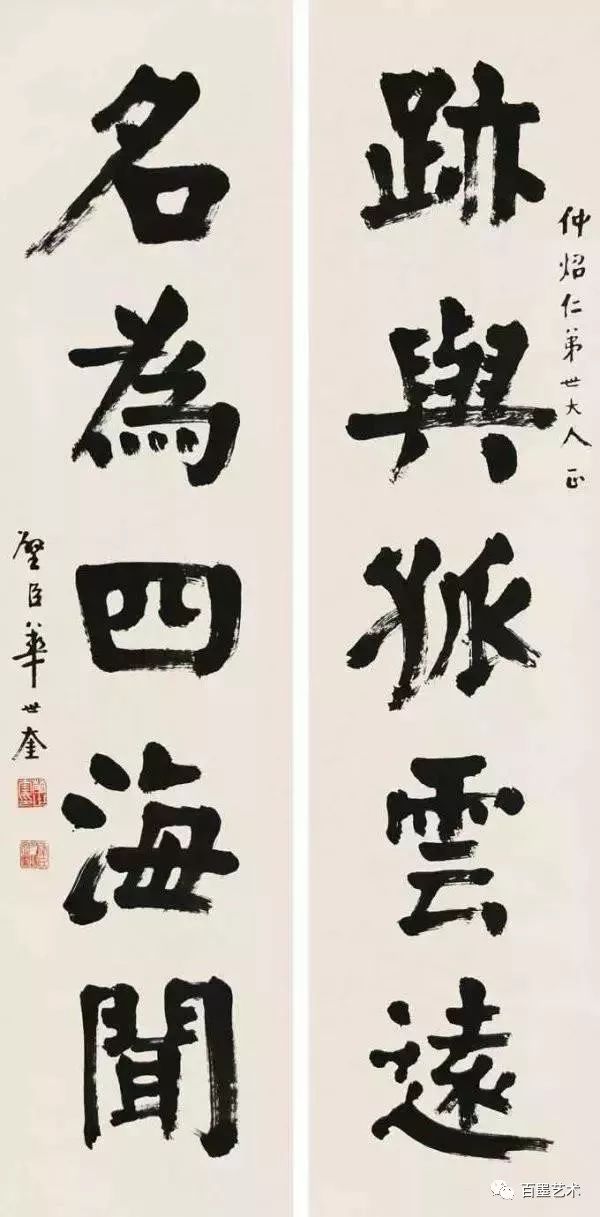 跡與孤雲遠
仲炤仁弟世大人正
名為四海聞
璧臣華世奎
百墨艺术